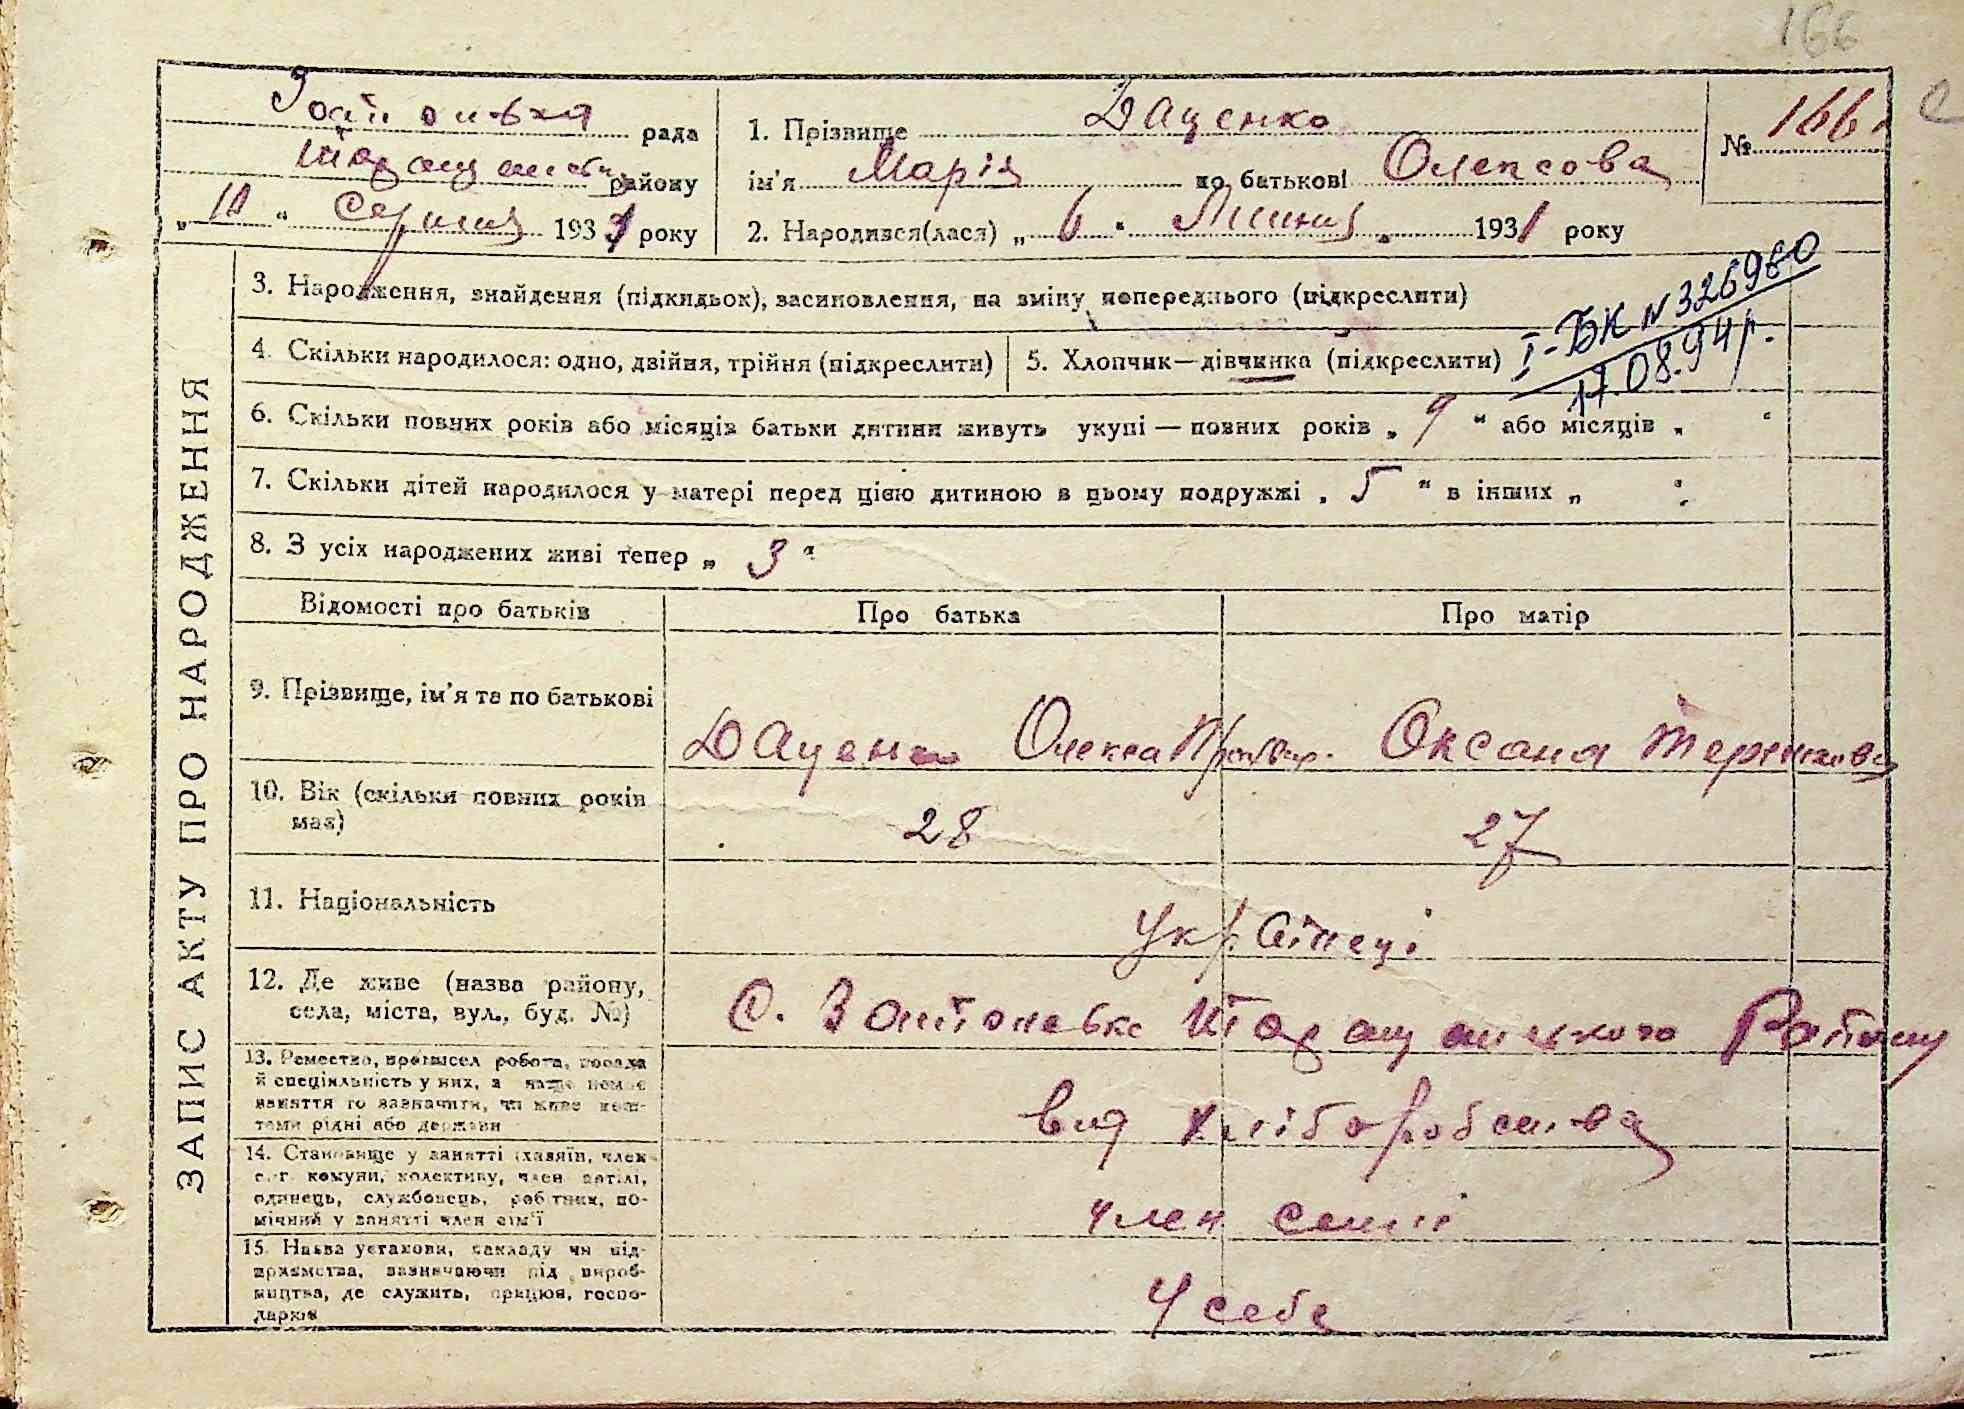 166
рада
району
„ 10 “ Серпня 1931 року
1. Прізвище Даценко
ім'я Марія по батькові Олексова
2. Народився(лася) „ 6 “ Липня 1931 року
№ 166
ЗАПИС АКТУ ПРО НАРОДЖЕННЯ
3. Народження, знайдення (підкидьок), засиновлення, на зміну попереднього (підкреслити)
I-БК N 326960
17.08.94р.
4. Скільки народилося: одно, двійня, трійня (підкреслити)
5. Хлопчик—дівчинка (підкреслити)
6. Скільки повних років або місяців батьки дитини живуть укупі — повних років „ 9 “ або місяців „ “
7. Скільки дітей народилося у матері перед цією дитиною в цьому подружжі „ 5 “ в інших „ “
8. З усіх народжених живі тепер „ 3 “
Відомості про батьків
Про батька
Про матір
9. Прізвище, ім'я та по батькові
Даценко Олекса
Оксана
10. Вік (скільки повних років
має)
28
27
11. Національність
Українці
12. Де живе (назва району,
села, міста, вул., буд. №)
С. Району
13. Ремество, промисел робота, посада
й спеціяльність у них, а якщо немає
заняття то зазначити, чи живе кош-
тами рідні або держави
від хліборобства
14. Становище у занятті (хазяїн, член
с.-г. комуни, колективу, член артілі,
одинець, службовець, робітник, по-
мічний у занятті член сім'ї
член семії
15. Назва установи, закладу чи під-
приємства, зазначаючи рід вироб-
ництва, де служить, працює, госпо-
дарює
У себе